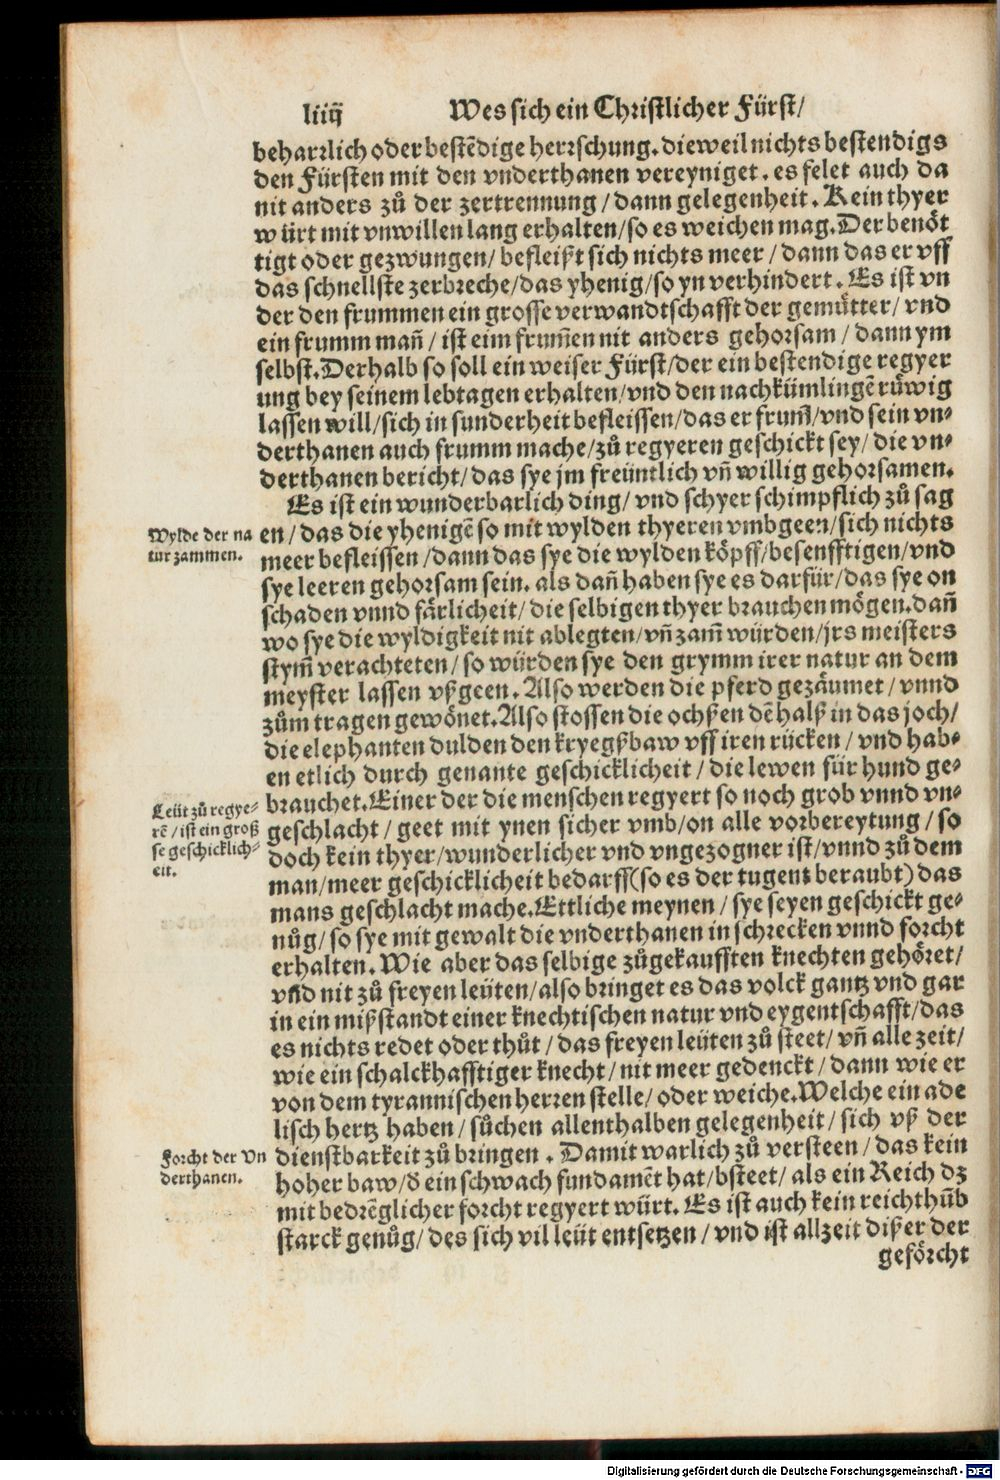 liiij Wes sich ein Christlicher Fürst/
beharrlich oder bestēdige herrschung. dieweil nichts bestendigs
den Fürsten mit den vnderthanen vereyniget. es felet auch da
nit anders zů der zertrennung/ dann gelegenheit. Kein thyer
würt mit vnwillen lang erhalten/ so es weichen mag. Der benöt
tigt oder gezwungen/ befleißt sich nichts meer/ dann das er vff
das schnellste zerbreche/ das yhenig/ so yn verhindert. Es ist vn
der den frummen ein grosse verwandtschafft der gemütter/ vnd
ein frumm mañ/ ist eim frum̄en nit anders gehorsam/ dann ym
selbst. Derhalb so soll ein weiser Fürst/ der ein bestendige regyer
ung bey seinem lebtagen erhalten/ vnd den nachkümlingē rüwig
lassen will/ sich in sunderheit befleissen/ das er frum̄/ vnd sein vn-
derthanen auch frumm mache/ zů regyeren geschickt sey/ die vn-
derthanen bericht/ das sye jm freüntlich vñ willig gehorsamen.
Es ist ein wunderbarlich ding/ vnd schyer schimpflich zů sag
Wylde der na
tur zammen.
en/ das die yhenigē so mit wylden thyeren vmbgeen/ sich nichts
meer befleissen/ dann das sye die wylden köpff/ besenfftigen/ vnd
sye leeren gehorsam sein. als dañ haben sye es darfür/ das sye on
schaden vnnd färlicheit/ die selbigen thyer brauchen mögen. dañ
wo sye die wyldigkeit nit ablegten/ vñ zam̄ würden/ jrs meisters
stym̄ verachteten/ so würden sye den grymm irer natur an dem
meyster lassen vßgeen. Also werden die pferd gezäumet/ vnnd
zům tragen gewönet. Also stossen die ochßen dē halß in das joch/
die elephanten dulden den kryegßbaw vff iren rücken/ vnd hab-
en etlich durch genante geschicklicheit/ die lewen für hund ge-
Leüt zů regye-
rē/ ist ein groß
se geschicklich-
eit.
brauchet. Einer der die menschen regyert so noch grob vnnd vn-
geschlacht/ geet mit ynen sicher vmb/ on alle vorbereytung/ so
doch kein thyer/ wunderlicher vnd vngezogner ist/ vnnd zů dem
man/ meer geschicklicheit bedarff (so es der tugent beraubt) das
mans geschlacht mache. Ettliche meynen/ sye seyen geschickt ge-
nůg/ so sye mit gewalt die vnderthanen in schrecken vnnd forcht
erhalten. Wie aber das selbige zůgekaufften knechten gehöret/
vnd nit zů freyen leüten/ also bringet es das volck gantz vnd gar
in ein mißstandt einer knechtischen natur vnd eygentschafft/ das
es nichts redet oder thůt/ das freyen leüten zů steet/ vñ alle zeit/
wie ein schalckhafftiger knecht/ nit meer gedenckt/ dann wie er
von dem tyrannischen herren stelle/ oder weiche. Welche ein ade
lisch hertz haben/ sůchen allenthalben gelegenheit/ sich vß der
Forcht der Vn
derthanen.
dienstbarkeit zů bringen. Damit warlich zů versteen/ das kein
hoher baw/ d̄ ein schwach fundamēt hat/ bsteet/ als ein Reich dz
mit bedrēglicher forcht regyert würt. Es ist auch kein reichthūb
starck genůg/ des sich vil leüt entsetzen/ vnd ist allzeit dißer der
geförcht
Digitalisierung gefördert durch die Deutsche Forschungsgemeinschaft - DFG